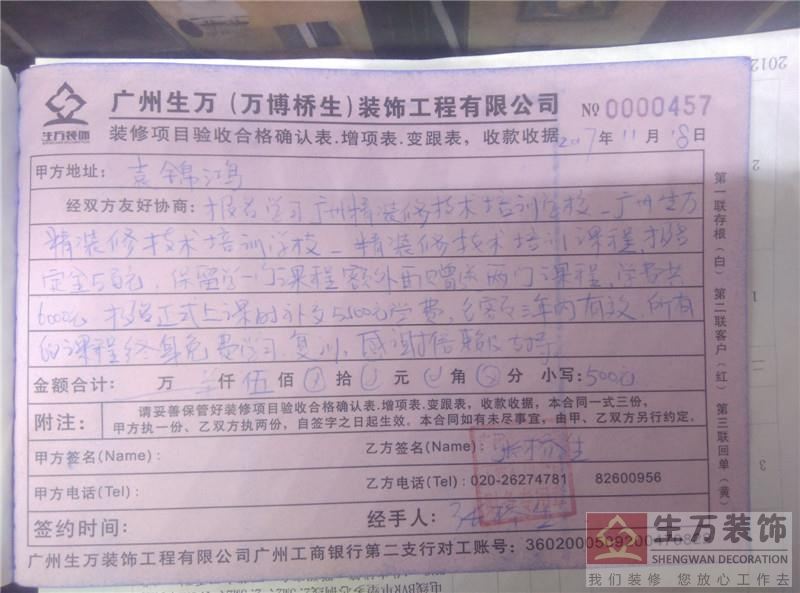 2012
生万装饰
广州生万（万博桥生）装饰工程有限公司 NO 0000457
装修项目验收合格确认表.增项表.变跟表，收款收据 2017年11月18日
甲方地址： 袁锦鸿
经双方友好协商：报名学习广州精装修技术培训学校_广州生万
精装修技术培训学校_精装修技术培训课程，报名
定金500元，保留学一门课程额外再赠送两门课程，学费共
6000元，报名正式上课时补交5500元学费，名额三年内有效，所有
的课程终身免费学习复训，感谢信赖支持
金额合计： 万 仟 伍 佰 拾 元 角 分 小写：500元
附注： 请妥善保管好装修项目验收合格确认表.增项表.变跟表，收款收据，本合同一式三份，
甲方执一份、乙双方执两份，自签字之日起生效。本合同如有未尽事宜，由甲、乙双方另行约定。
甲方签名(Name)： 乙方签名(Name)： 张桥生
甲方电话(Tel)： 乙方电话(Tel)：020-26274781 82600956
签约时间： 经手人： 张桥生
广州生万装饰工程有限公司广州工商银行第二支行对工账号：
第一联存根（白） 第二联客户（红） 第三联回单（黄）
2
1
3
生万装饰
SHENGWAN DECORATION
我们装修 您放心工作去